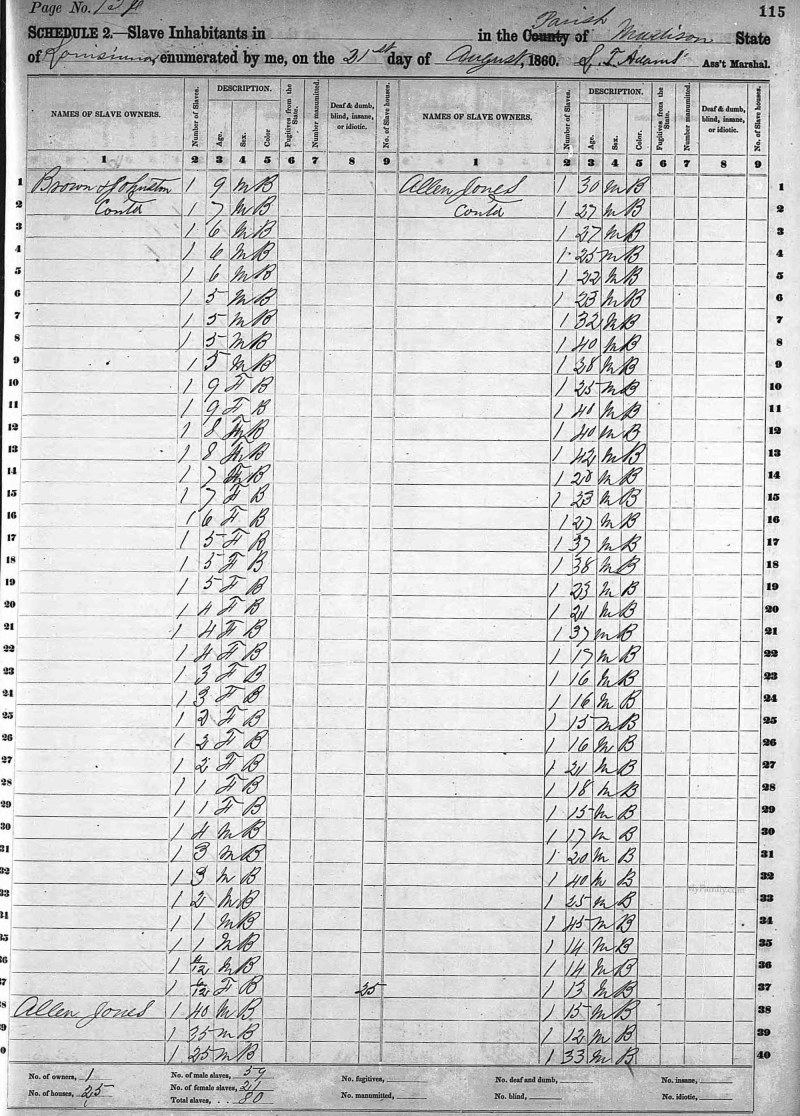 Page No. 115
SCHEDULE 2.—Slave Inhabitants in in the County Parish of Madison State
of Louisiana, enumerated by me, on the 21st day of August, 1860. L. T. Adams Ass't Marshal.
NAMES OF SLAVE OWNERS. Number of Slaves. DESCRIPTION. Age. Sex. Color. Fugitives from the State. Number manumitted. Deaf & dumb, blind, insane, or idiotic. No. of Slave houses. NAMES OF SLAVE OWNERS. Number of Slaves. DESCRIPTION. Age. Sex. Color. Fugitives from the State. Number manumitted. Deaf & dumb, blind, insane, or idiotic. No. of Slave houses.
1 2 3 4 5 6 7 8 9 1 2 3 4 5 6 7 8 9
1 Brown & Johnston 1 9 M B Allen Jones 1 30 M B 1
2 Contd 1 7 M B Contd 1 27 M B 2
3 1 6 M B 1 27 M B 3
4 1 6 M B 1 25 M B 4
5 1 6 M B 1 22 M B 5
6 1 5 M B 1 23 M B 6
7 1 5 M B 1 32 M B 7
8 1 5 M B 1 40 M B 8
9 1 5 M B 1 28 M B 9
10 1 9 F B 1 25 M B 10
11 1 9 F B 1 40 M B 11
12 1 8 F B 1 40 M B 12
13 1 8 F B 1 42 M B 13
14 1 7 F B 1 28 M B 14
15 1 7 F B 1 23 M B 15
16 1 6 F B 1 27 M B 16
17 1 5 F B 1 37 M B 17
18 1 5 F B 1 38 M B 18
19 1 5 F B 1 23 M B 19
20 1 4 F B 1 21 M B 20
21 1 4 F B 1 37 M B 21
22 1 4 F B 1 17 M B 22
23 1 3 F B 1 16 M B 23
24 1 3 F B 1 16 M B 24
25 1 2 F B 1 15 M B 25
26 1 2 F B 1 16 M B 26
27 1 2 F B 1 21 M B 27
28 1 1 F B 1 18 M B 28
29 1 1 F B 1 15 M B 29
30 1 4 M B 1 17 M B 30
31 1 3 M B 1 20 M B 31
32 1 3 M B 1 40 M B 32
33 1 2 M B 1 25 M B 33
34 1 1 M B 1 45 M B 34
35 1 1 M B 1 14 M B 35
36 1 6/12 M B 1 14 M B 36
37 1 6/12 F B 25 1 13 M B 37
38 Allen Jones 1 40 M B 1 15 M B 38
39 1 35 M B 1 12 M B 39
40 1 25 M B 1 33 M B 40
No. of owners, 1 No. of male slaves, 59 No. fugitives, No. deaf and dumb, No. insane,
No. of houses, 25 No. of female slaves, 21 No. manumitted, No. blind, No. idiotic,
Total slaves, 80